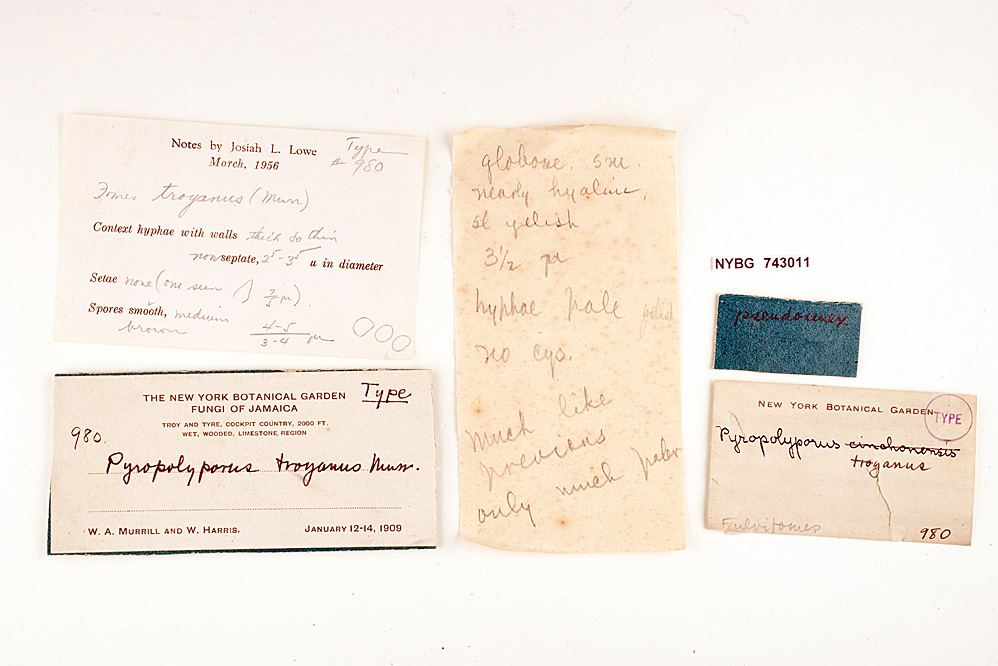 Notes by Josiah L. Lowe
March, 1956
Type
# 980
Fomes troyanus (Murr)
Context hyphae with walls thick to thin
non septate, 2⁵-3⁵ u in diameter
Setae none (one seen
Spores smooth, medium
brown 4-5
3-4 µ
THE NEW YORK BOTANICAL GARDEN
FUNGI OF JAMAICA
Type
TROY AND TYRE, COCKPIT COUNTRY, 2000 FT.
WET, WOODED, LIMESTONE REGION
980.
Pyropolyporus troyanus Murr.
W. A. MURRILL AND W. HARRIS.
JANUARY 12-14, 1909
globose, sm.
nearly hyaline,
sl yelish
3½ µ
hyphae pale yelish
no cys.
much like
previous
only much paler
NYBG 743011
pseudosenex
NEW YORK BOTANICAL GARDEN
TYPE
Pyropolyporus cinchonensis
troyanus
Fulvifomes
980